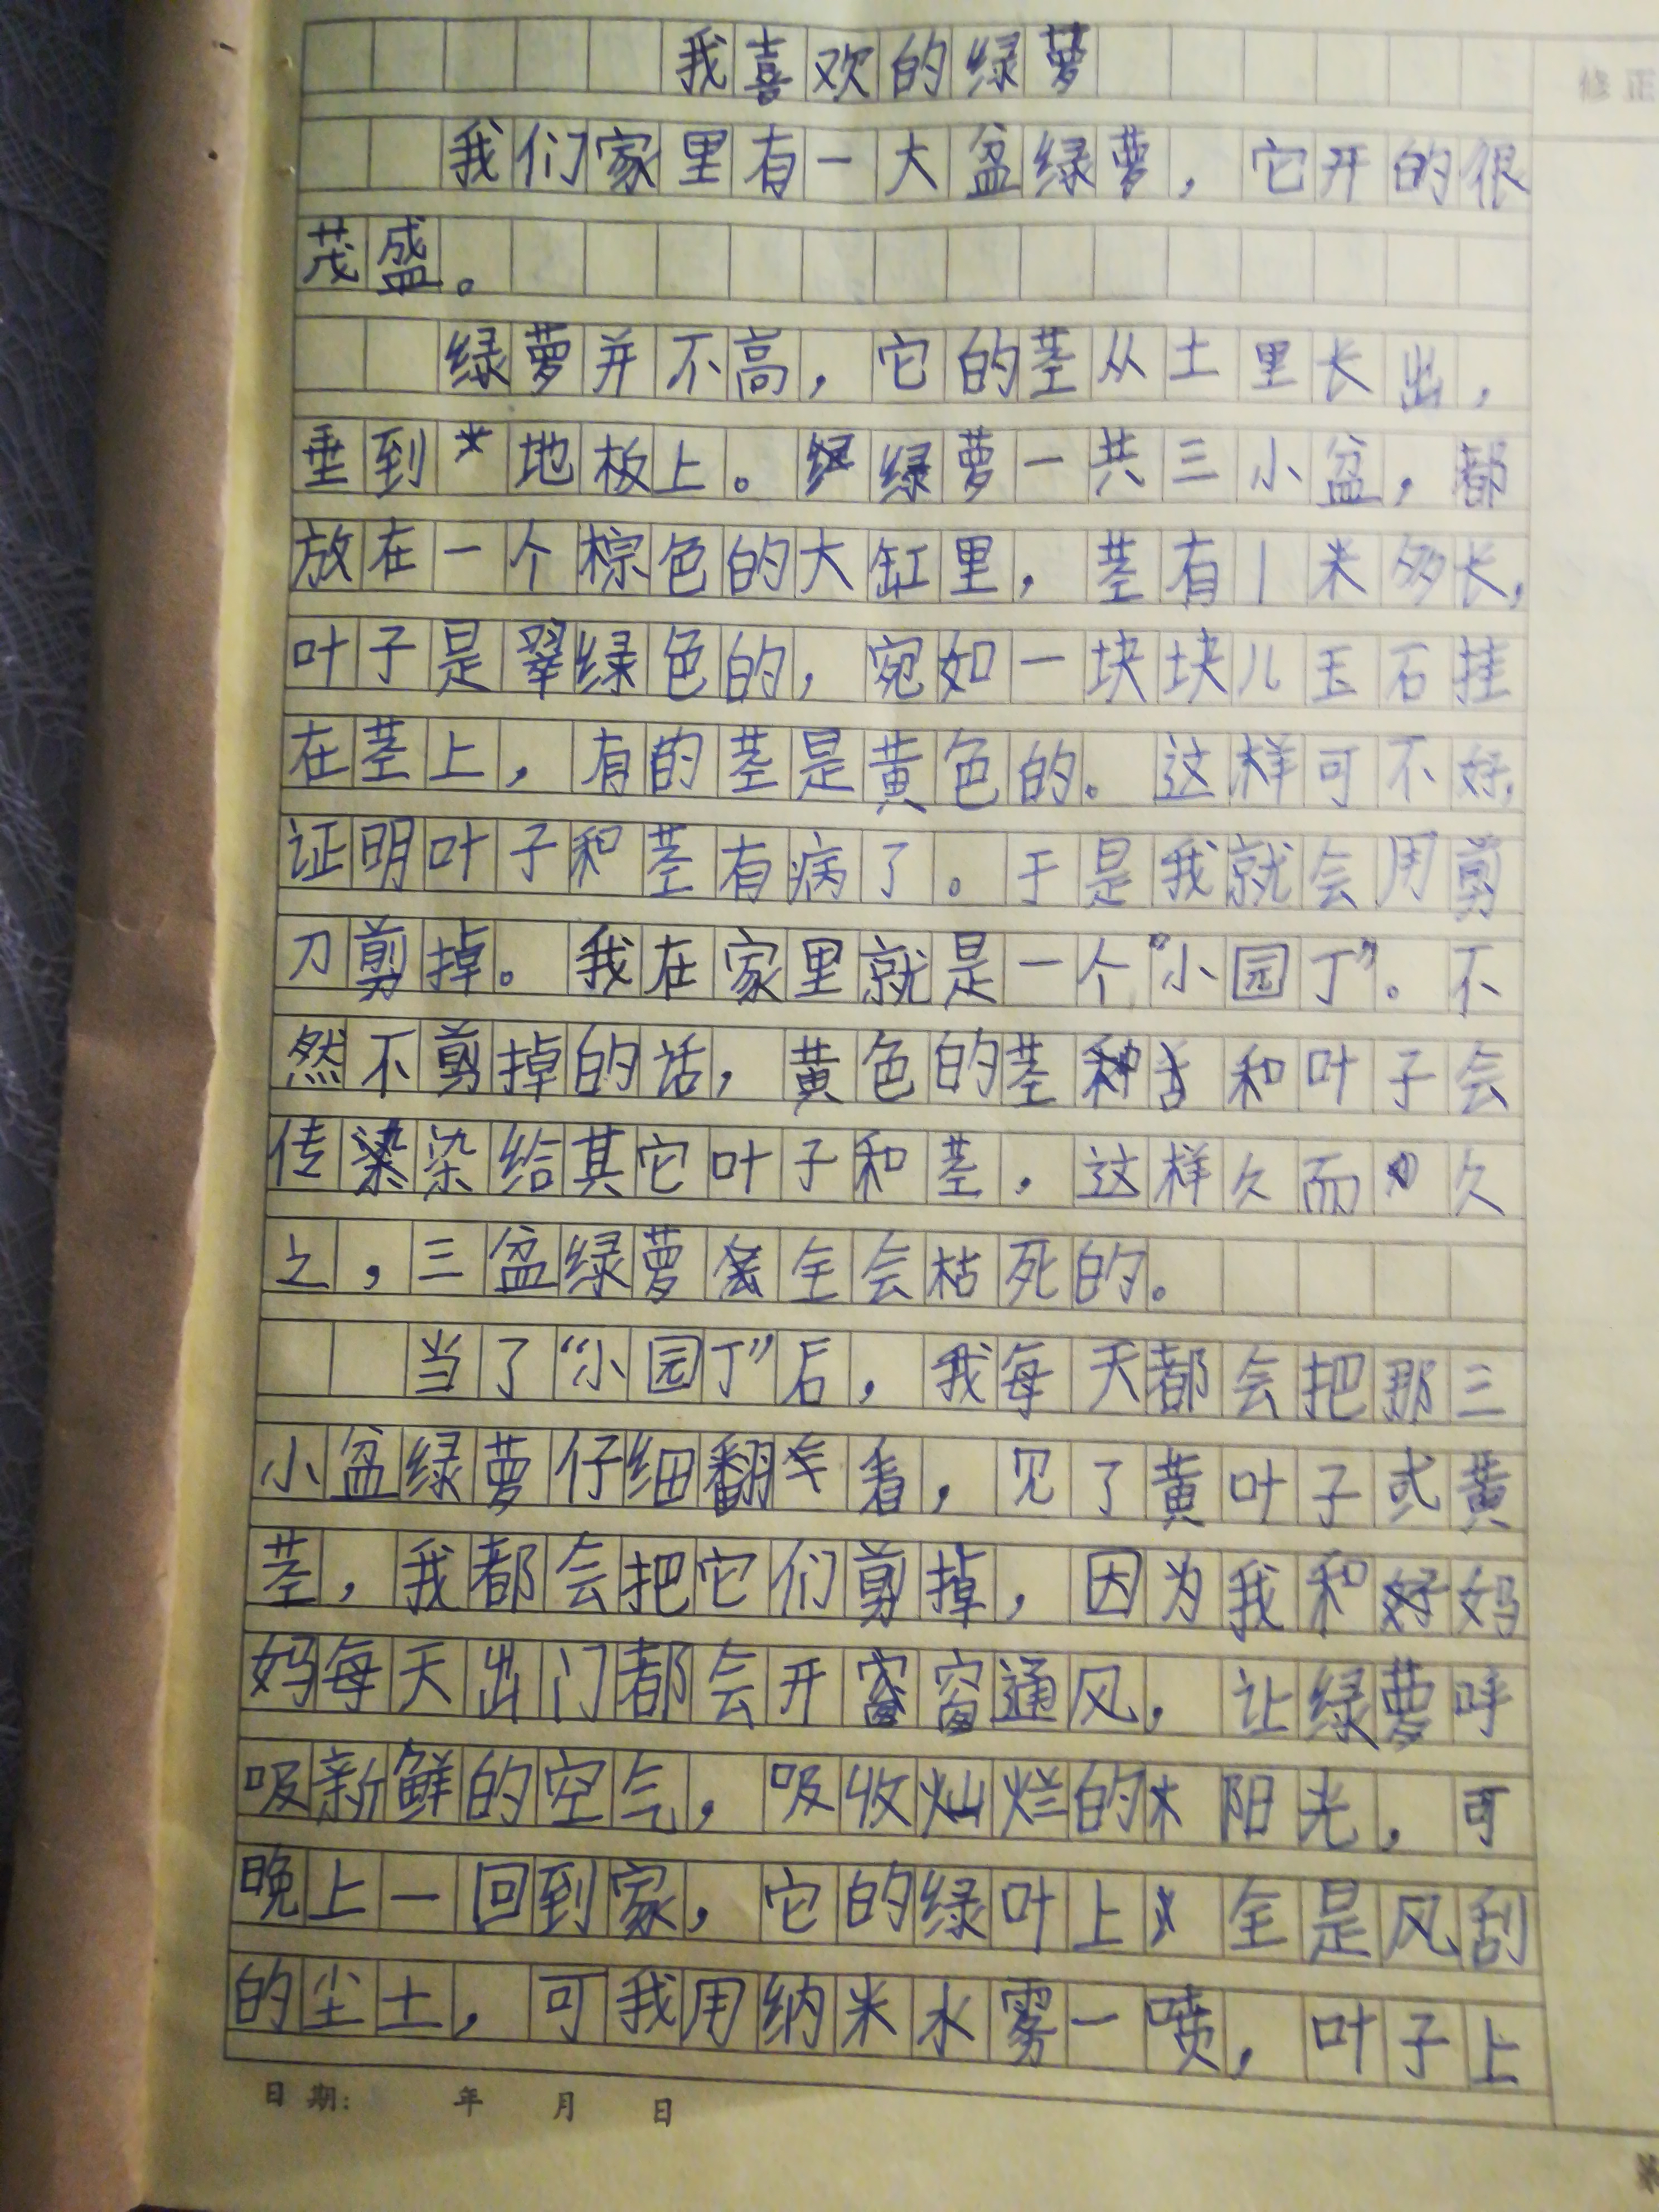 我喜欢的绿萝
修正
我们家里有一大盆绿萝，它开的很
茂盛。
绿萝并不高，它的茎从土里长出，
垂到地板上。绿萝一共三小盆，都
放在一个棕色的大缸里，茎有1米多长，
叶子是翠绿色的，宛如一块块儿玉石挂
在茎上，有的茎是黄色的。这样可不好，
证明叶子和茎有病了。于是我就会用剪
刀剪掉。我在家里就是一个“小园丁”。不
然不剪掉的话，黄色的茎和叶子会
传染给其它叶子和茎，这样久而久
之，三盆绿萝全会枯死的。
当了“小园丁”后，我每天都会把那三
小盆绿萝仔细翻看，见了黄叶子或黄
茎，我都会把它们剪掉，因为我和妈
妈每天出门都会开窗通风，让绿萝呼
吸新鲜的空气，吸收灿烂的阳光，可
晚上一回到家，它的绿叶上全是风刮
的尘土，可我用纳米水雾一喷，叶子上
日期： 年 月 日